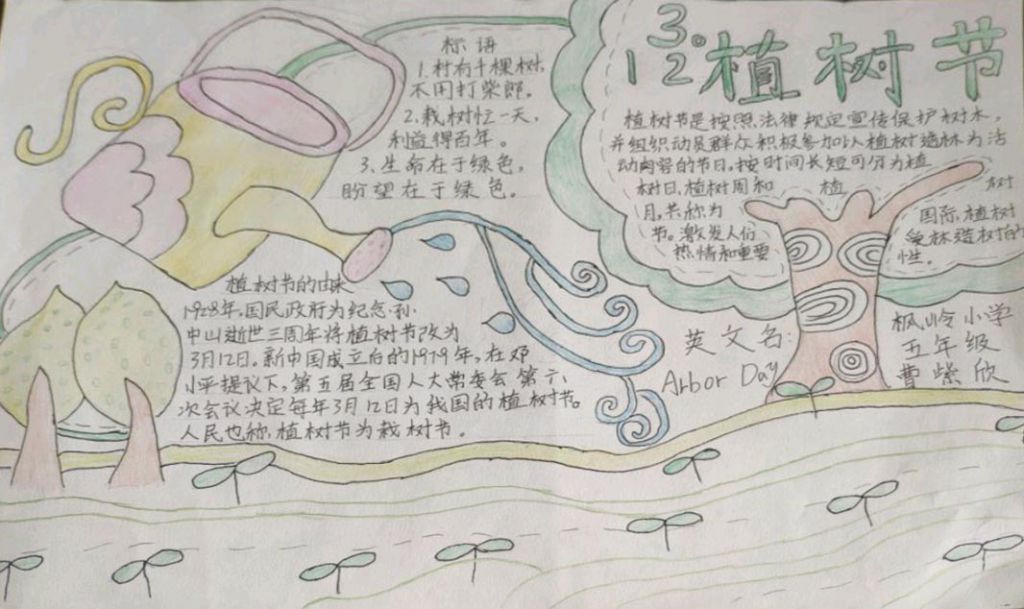 标语
1.村有千棵树,
不用打柴郎。
2.栽树忙一天,
利益得百年。
3.生命在于绿色,
盼望在于绿色。
3.12 植树节
植树节是按照法律规定宣传保护树木,
并组织动员群众积极参加以植树造林为活
动内容的节日,按时间长短可分为植
树日、植树周和 植树
月,共称为 国际植树
节。激发人们 爱林造树的
热情和重要 性。
植树节的由来
1928年,国民政府为纪念孙
中山逝世三周年将植树节改为
3月12日。新中国成立后的1979年,在邓
小平提议下,第五届全国人大常委会第六
次会议决定每年3月12日为我国的植树节。
人民也称,植树节为栽树节。
英文名:
Arbor Day
枫岭小学
五年级
曹紫欣